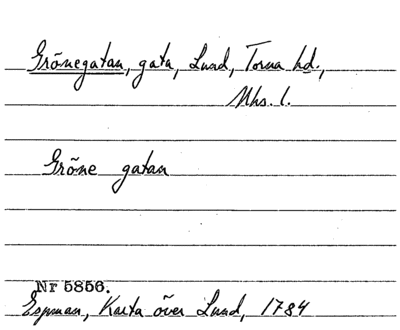 Grönegatan, gata, Lund, Torna hd.,
Mhs. l.
Gröne gatan
Nr 5856.
Espman, Karta över Lund, 1784